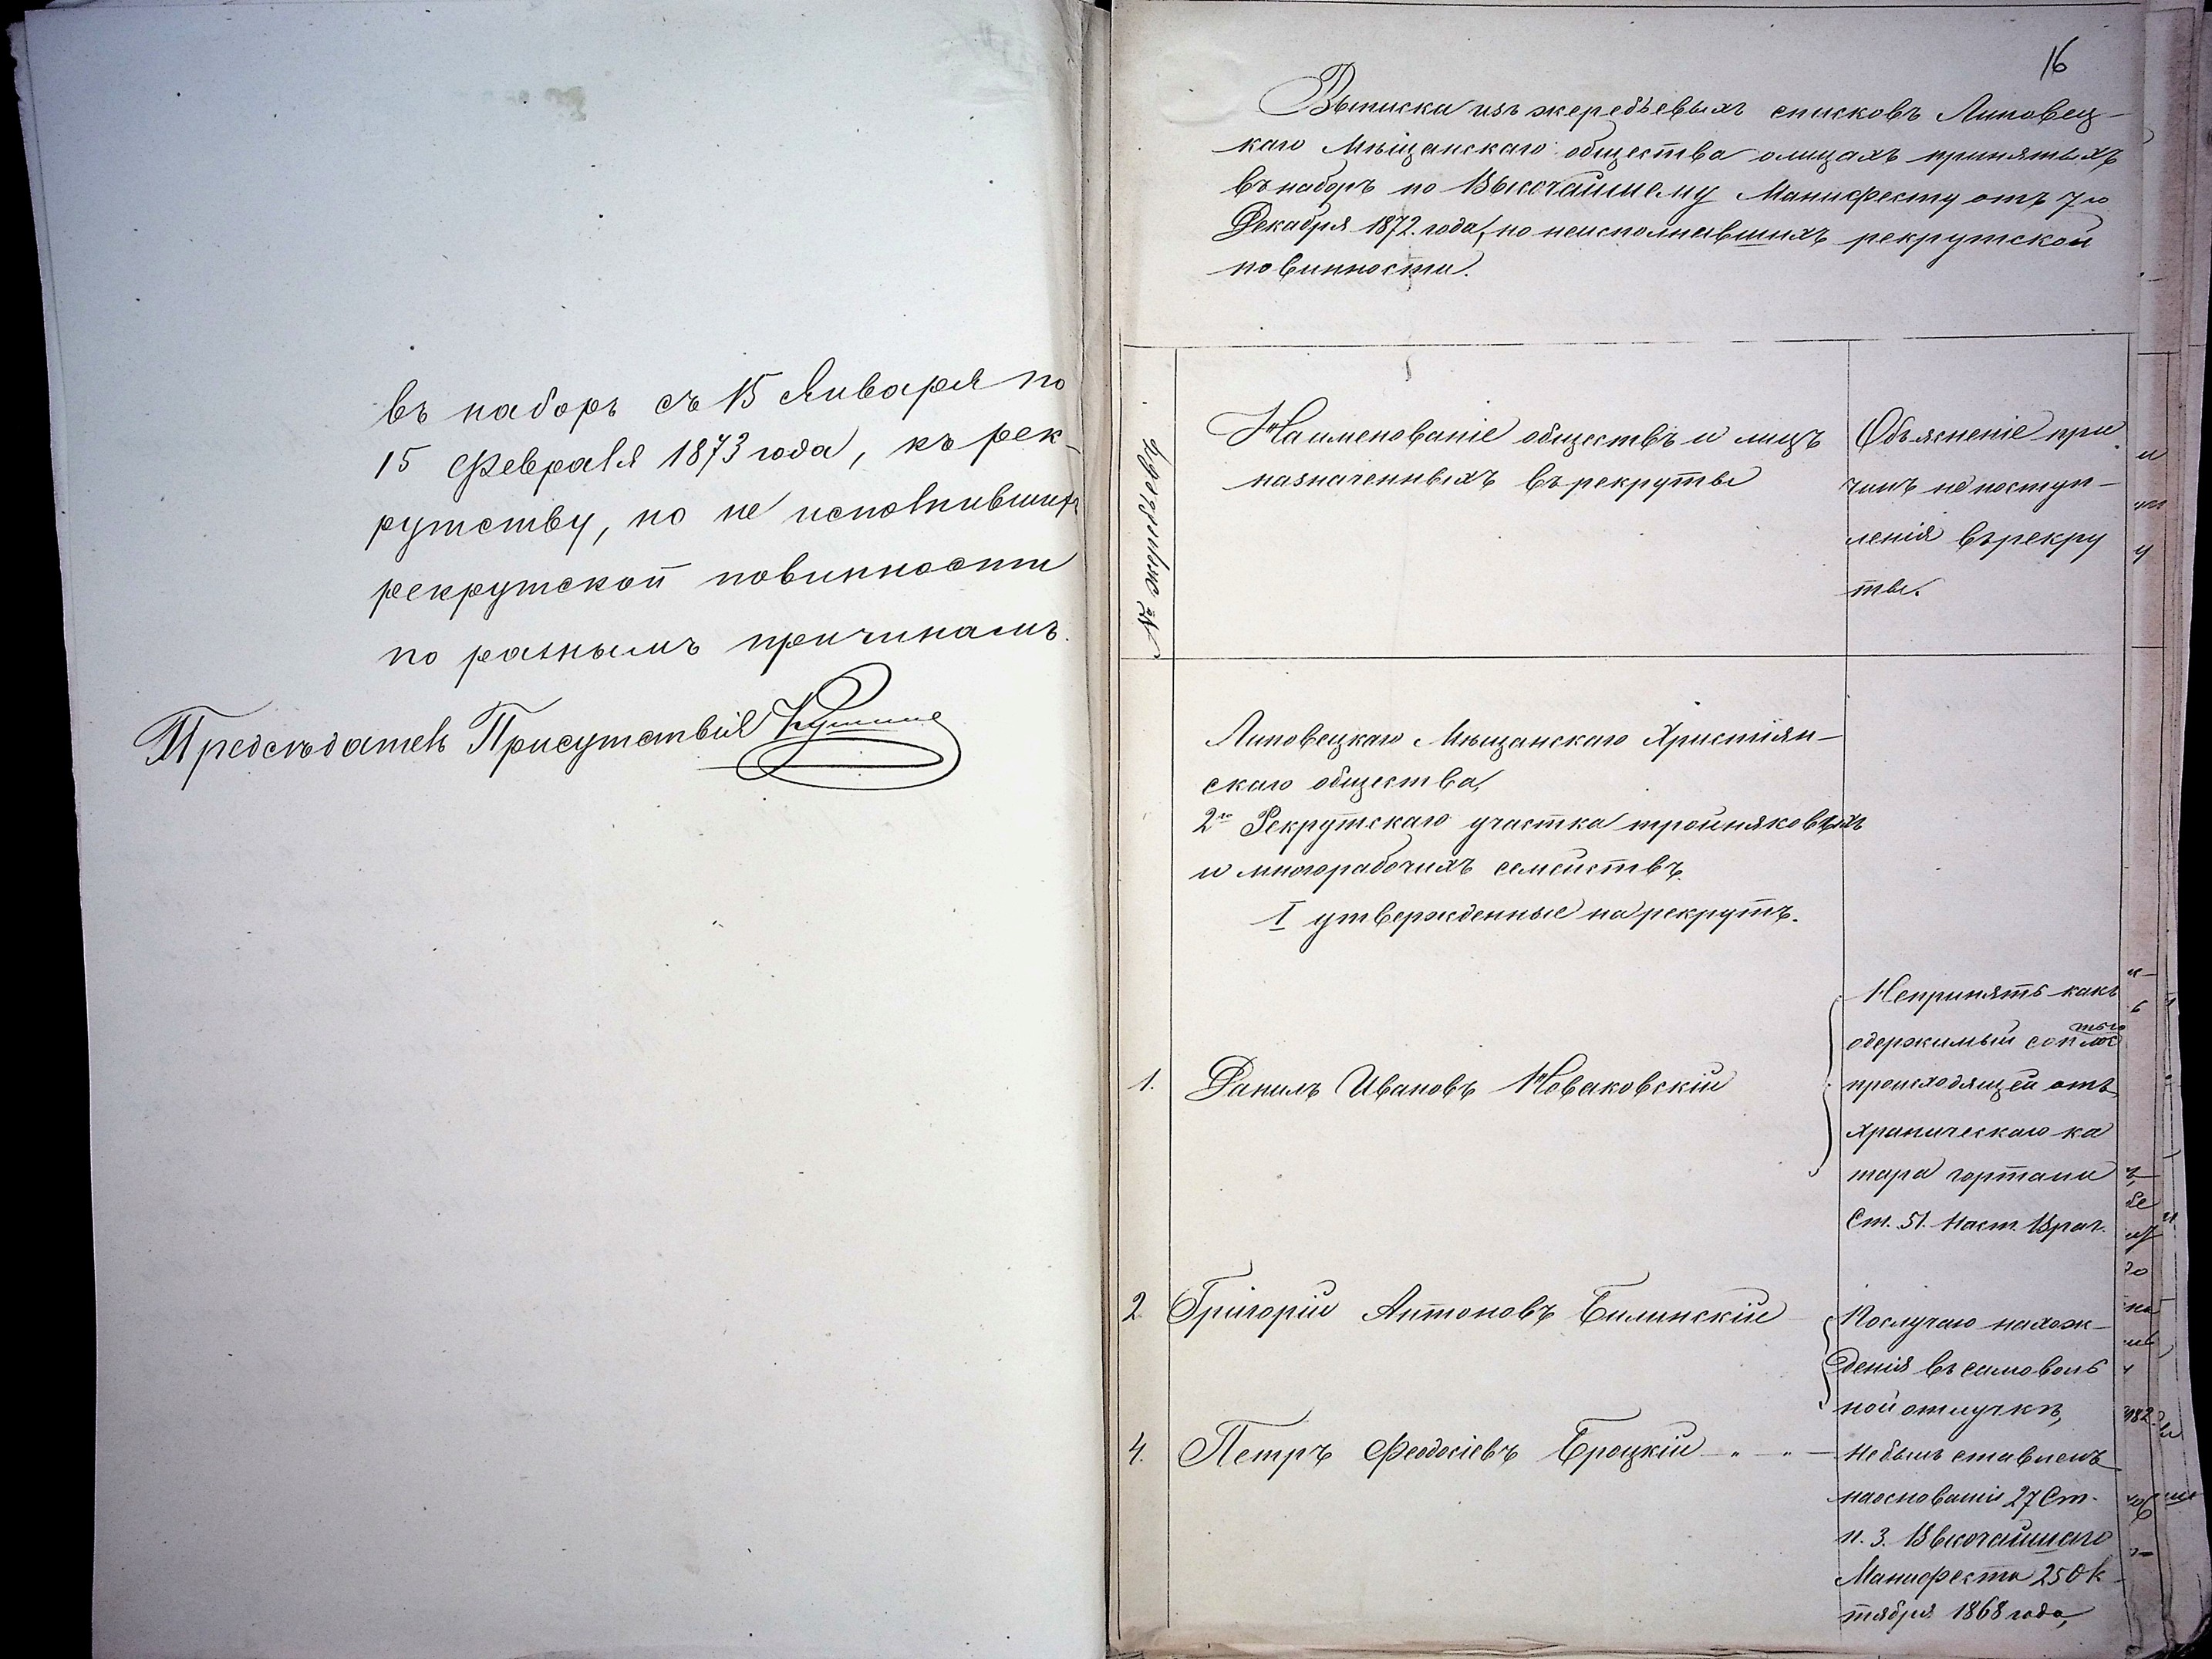 въ наборъ съ 15 Января по
15 Февраля 1873 года, къ рек-
рутству, но не исполнившихъ
рекрутской повинности
по разнымъ причинамъ.
Председатель Присутствія
16
Выписка изъ жеребьевыхъ списковъ Липовец-
каго Мѣщанскаго общества о лицахъ принятыхъ
въ наборъ по Высочайшему Манифесту отъ 7го
Декабря 1872 года, но неисполнившихъ рекрутской
повинности.
№ жеребьевъ
Наименованіе обществъ и лицъ
назначенныхъ въ рекруты
Объясненіе при
чинъ непоступ-
ленія въ рекру
ты.
Липовецкаго Мѣщанскаго Христіян-
скаго общества,
2го Рекрутскаго участка тройняковыхъ
и многорабочихъ семействъ.
I утвержденные на рекрутъ.
1. Данилъ Ивановъ Новаковскій
Непринятъ какъ
одержимый
происходящей отъ
храническаго ка
тара гортани
Ст. 51. Наст. Врач.
2 Григорій Антоновъ Билинскій
Послучаю нахож-
денія въ самоволь
ной отлучкѣ,
4. Петръ Феодосіевъ Броцкій - " - " -
Небылъ ставленъ
на основаніи 27 Ст.
п. 3. Высочайшаго
Манифеста 25 Ок-
тября 1868 года,